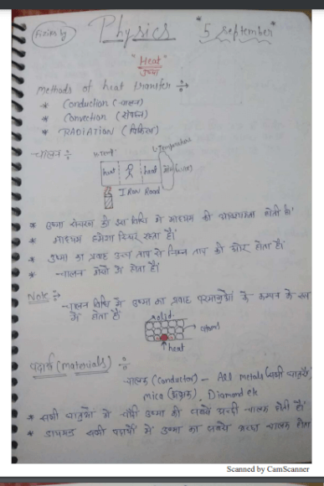 Physics "5 September"
"Heat"
ऊष्मा
Methods of heat transfer ÷
* Conduction (चालन)
* Convection (संवहन)
* RADIATION (विकिरण)
चालन ÷
heat heat
IRON Road
* ऊष्मा संचरण की इस विधि में माध्यम की आवश्यकता होती है।
* माध्यम हमेशा स्थिर रहता है।
* ऊष्मा का प्रवाह उच्च ताप से निम्न ताप की ओर होता है।
* चालन ठोसों में होता है।
Note ÷
चालन विधि में ऊष्मा का प्रवाह परमाणुओं के कम्पन के
में होता है
solid
atoms
heat
पदार्थ (materials) ÷
चालक (conductor) - All metals (सभी धातुएँ)
mica (अभ्रक), Diamond etc
* सभी धातुओं में चाँदी ऊष्मा की सबसे अच्छी चालक होती है
* डायमण्ड सभी पदार्थों में ऊष्मा का सबसे अच्छा चालक होता
Scanned by CamScanner